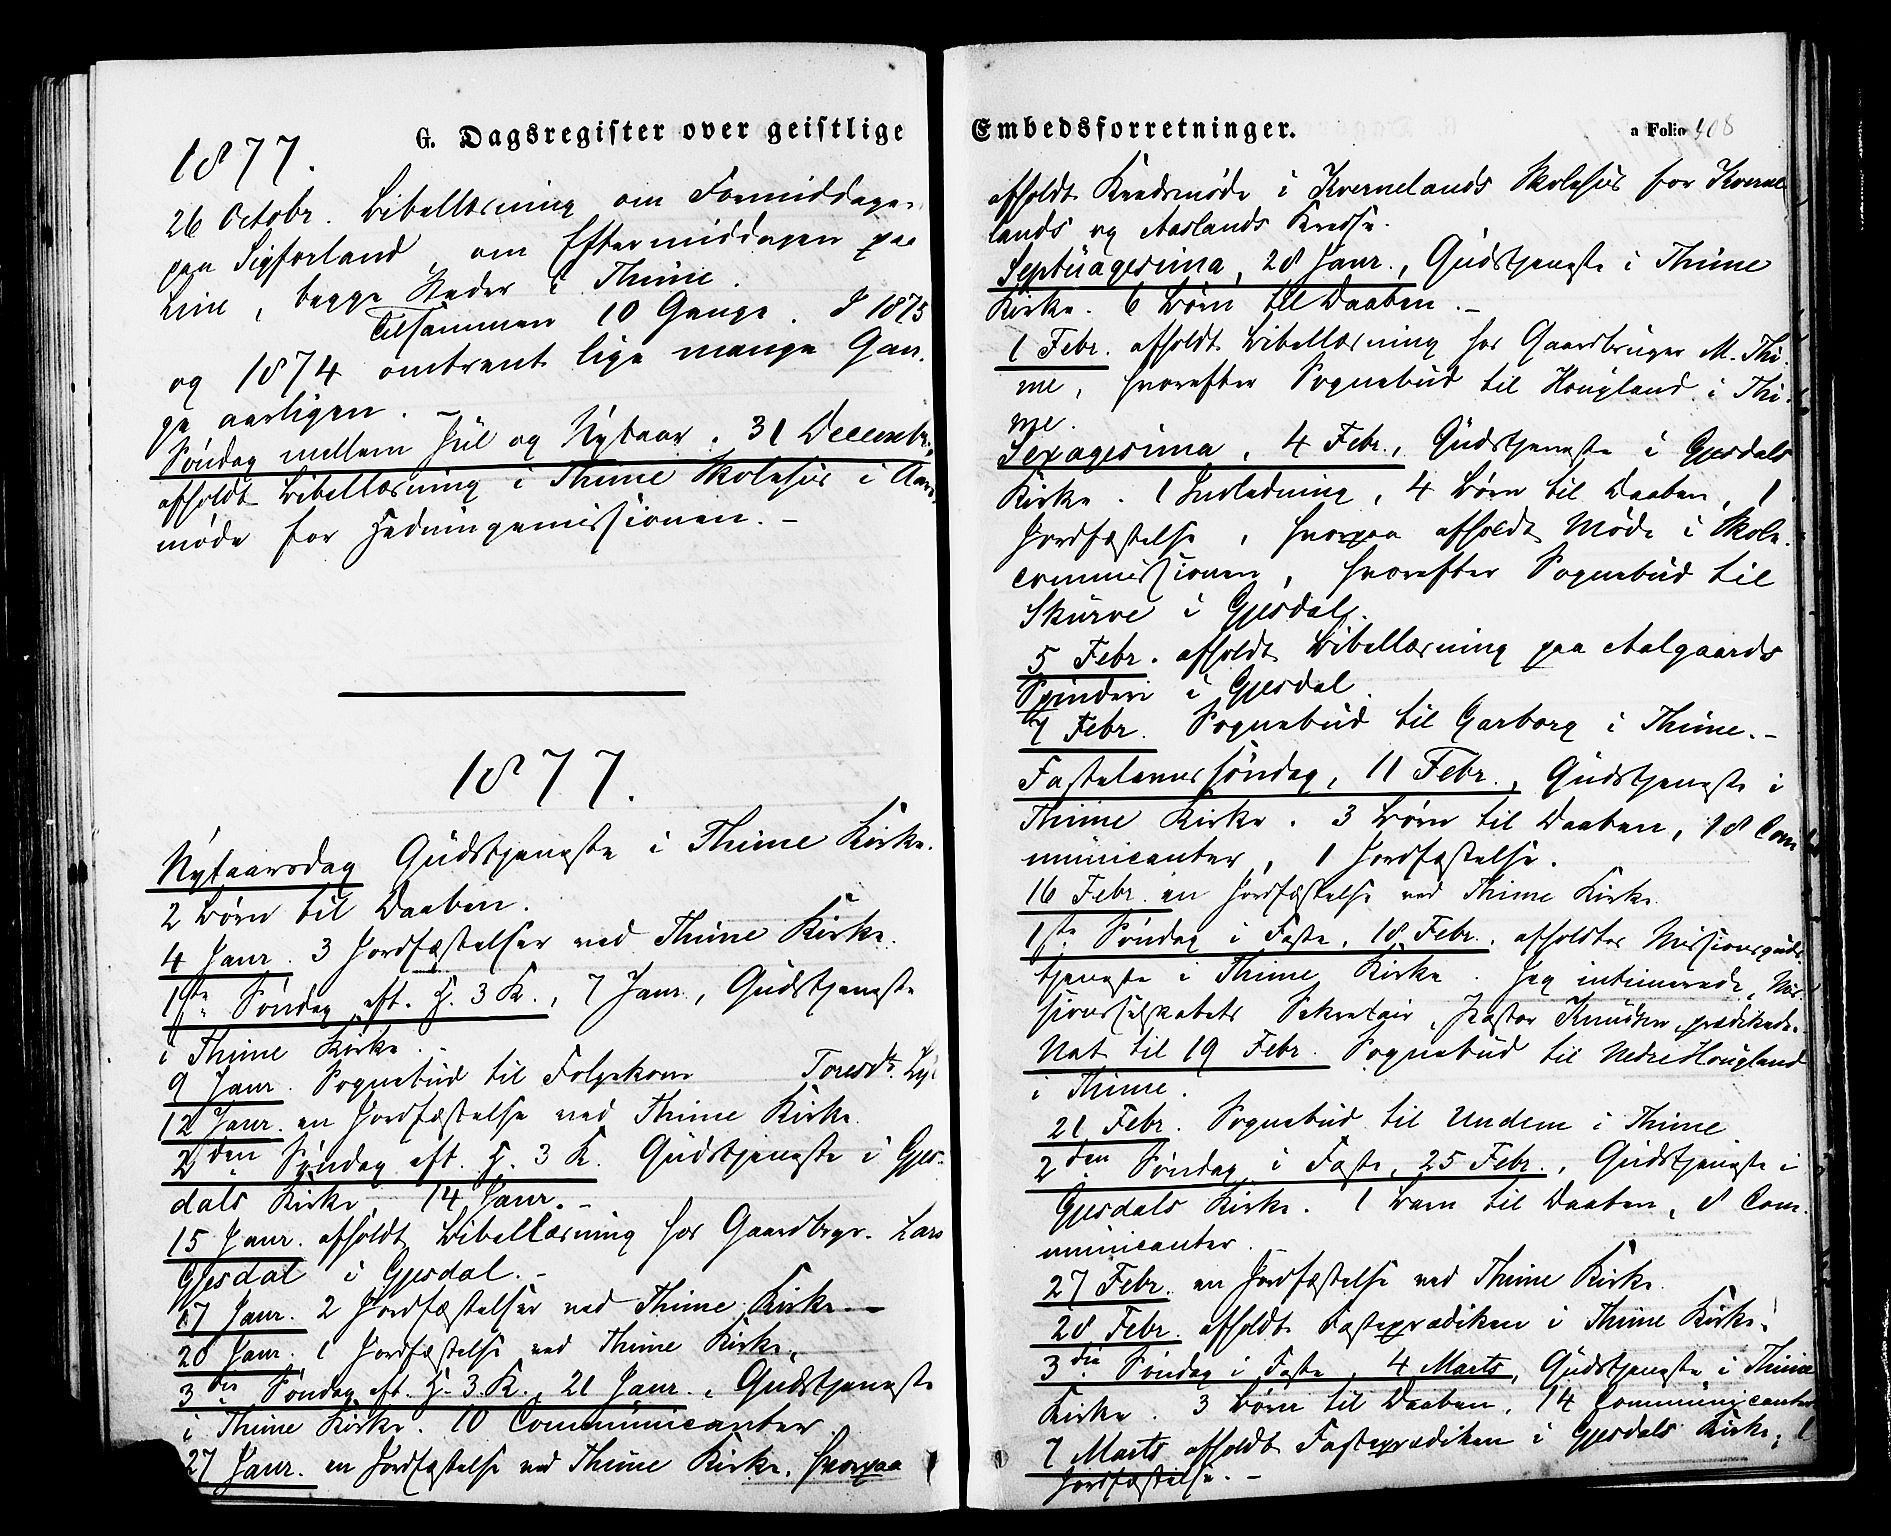 G. Dagsregister over geistlige
1877.
26 Octobr. Bibellæsning om Formiddagen
paa Sigforland, om Eftermiddagen paa
Line, begge Steder i Thime.
Tilsammen 10 Gange. I 1875
og 1874 omtrent lige mange Gan-
ge aarligen. –
Søndag mellem Jul og Nytaar. 31 Decembr.
afholdt Bibellæsning i Thime Skolehus i
møde for Hedningemissionen. –
1877.
Nytaarsdag Gudstjeneste i Thime Kirke.
2 Børn til Daaben.
4 Janr. 3 Jordfæstelser ved Thime Kirke.
1ste Søndag eft. H. 3 K., 7 Janr., Gudstjeneste
i Thime Kirke. –
9 Janr. Sognebud til Folgekone Toresdr.
12 Janr. en Jordfæstelse ved Thime Kirke.
2den Søndag eft. H. 3 K. Gudstjeneste i Gjes-
dals Kirke, 14 Janr. –
15 Janr. afholdt Bibellæsning hos Gaardbrgr. Lars
Gjesdal i Gjesdal. –
17 Janr. 2 Jordfæstelser ved Thime Kirke. –
20 Janr. 1 Jordfæstelse ved Thime Kirke.
3die Søndag eft. H. 3 K., 21 Janr., Gudstjeneste
i Thime Kirke. 10 Communicanter.
27 Janr. en Jordfæstelse ved Thime Kirke, hvorpaa
Embedsforretninger.
a Folio 408
afholdt Kredsmøde i Kvernelands Skolehus for Kverne-
lands og Aaslands Kredse.
Septuagesima, 28 Janr., Gudstjeneste i Thime
Kirke. 6 Børn til Daaben. –
1 Febr. afholdt Bibellæsning hos Gaardbruger M. Thi-
me, hvorefter Sognebud til Hougland i Thi-
me.
Sexagesima, 4 Febr., Gudstjeneste i Gjesdals
Kirke. 1 Indledning, 4 Børn til Daaben, 1
Jordfæstelse, hvorpaa afholdt Møde i Skole-
commissionen, hvorefter Sognebud til
Skurve i Gjesdal.
5 Febr. afholdt Bibellæsning paa Aalgaards
Spinderi i Gjesdal.
7 Febr. Sognebud til Garborg i Thime. –
Fastelavnssøndag, 11 Febr., Gudstjeneste i
Thime Kirke. 3 Børn til Daaben, 18 Com-
municanter, 1 Jordfæstelse.
16 Febr. en Jordfæstelse ved Thime Kirke.
1ste Søndag i Faste, 18 Febr. afholdtes Missionsguds-
tjeneste i Thime Kirke. Jeg intimerede, Mis-
sionsselskabets Sekretair, Pastor Knudsen prædikede.
Nat til 19 Febr. Sognebud til Nedre Hougland
i Thime.
21 Febr. Sognebud til Undem i Thime
2den Søndag i Faste, 25 Febr., Gudstjeneste i
Gjesdals Kirke. 1 Barn til Daaben, 8 Com-
municanter.
27 Febr. en Jordfæstelse ved Thime Kirke.
28 Febr. afholdt Fasteprædiken i Thime Kirke.
3die Søndag i Faste, 4 Marts, Gudstjeneste i Thime
Kirke. 3 Børn til Daaben, 14 Communicanter
7 Marts afholdt Fasteprædiken i Gjesdals Kirke, 1
Jordfæstelse. –